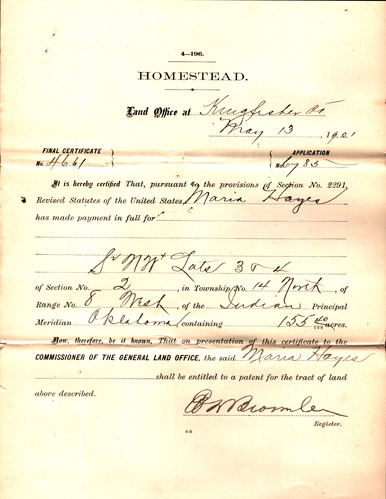 4—196.
HOMESTEAD.
Land Office at Kingfisher OT
May 13, 1901
FINAL CERTIFICATE
No. 4661
APPLICATION
No. 6785
It is hereby certified That, pursuant to the provisions of Section No. 2291,
Revised Statutes of the United States, Maria Hayes
has made payment in full for
S½ NW4 Lots 3 & 4
of Section No. 2, in Township No. 14 North, of
Range No. 8 West, of the Indian Principal
Meridian Oklahoma containing 155 40/100 acres.
Now, therefore, be it known, That on presentation of this certificate to the
COMMISSIONER OF THE GENERAL LAND OFFICE, the said Maria Hayes
shall be entitled to a patent for the tract of land
above described.
Register.